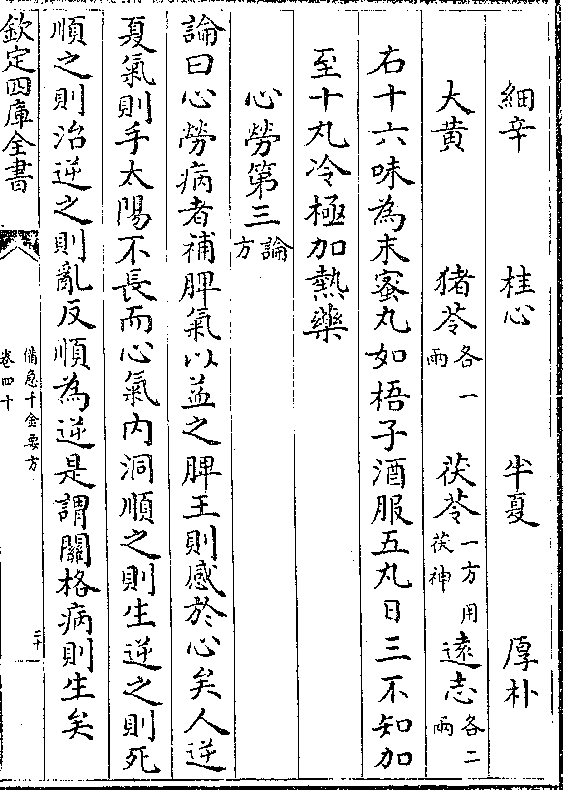 細辛 桂心 半夏 厚朴
大黄 猪苓各一兩 茯苓一方用茯神 遠志各二兩
右十六味為末蜜丸如梧子酒服五丸日三不知加
至十丸冷極加熱藥
心勞第三論方
論曰心勞病者補脾氣以益之脾王則感於心矣人逆
夏氣則手太陽不長而心氣内洞順之則生逆之則死
順之則治逆之則亂反順為逆是謂關格病則生矣
欽定四庫全書
備急千金要方
卷四十
二十